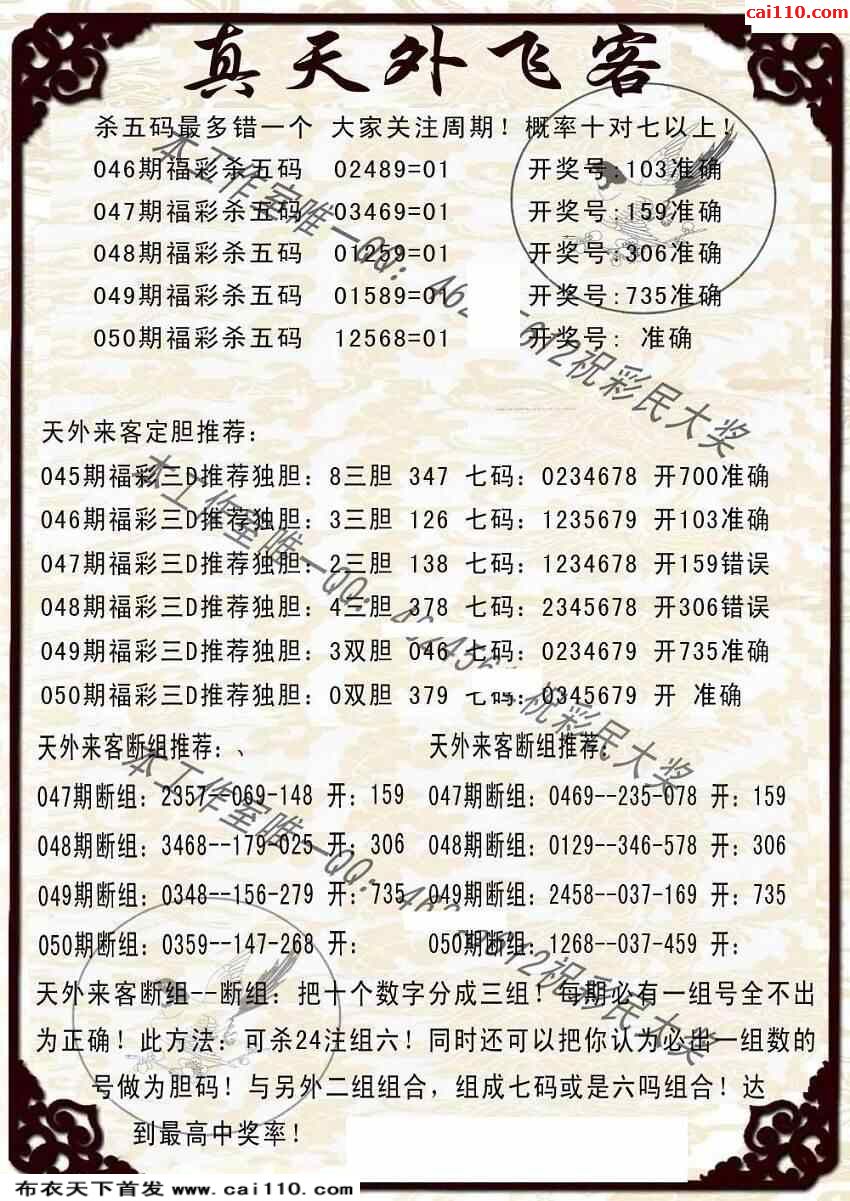 cai110.com
真天外飞客
杀五码最多错一个 大家关注周期！概率十对七以上！
046期福彩杀五码 02489=01 开奖号:103准确
047期福彩杀五码 03469=01 开奖号:159准确
048期福彩杀五码 01259=01 开奖号:306准确
049期福彩杀五码 01589=01 开奖号:735准确
050期福彩杀五码 12568=01 开奖号: 准确
天外来客定胆推荐：
045期福彩三D推荐独胆：8三胆 347 七码：0234678 开700准确
046期福彩三D推荐独胆：3三胆 126 七码：1235679 开103准确
047期福彩三D推荐独胆：2三胆 138 七码：1234678 开159错误
048期福彩三D推荐独胆：4三胆 378 七码：2345678 开306错误
049期福彩三D推荐独胆：3双胆 046 七码：0234679 开735准确
050期福彩三D推荐独胆：0双胆 379 七码：0345679 开 准确
天外来客断组推荐：、 天外来客断组推荐：
047期断组：2357--069-148 开：159 047期断组：0469--235-078 开：159
048期断组：3468--179-025 开：306 048期断组：0129--346-578 开：306
049期断组：0348--156-279 开：735 049期断组：2458--037-169 开：735
050期断组：0359--147-268 开： 050期断组：1268--037-459 开：
天外来客断组--断组：把十个数字分成三组！每期必有一组号全不出
为正确！此方法：可杀24注组六！同时还可以把你认为必出一组数的
号做为胆码！与另外二组组合，组成七码或是六吗组合！达
到最高中奖率！
本工作室唯一QQ：
祝彩民大奖
本工作室唯一QQ：
祝彩民大奖
本工作室唯一QQ：
祝彩民大奖
布衣天下首发 www.cai110.com